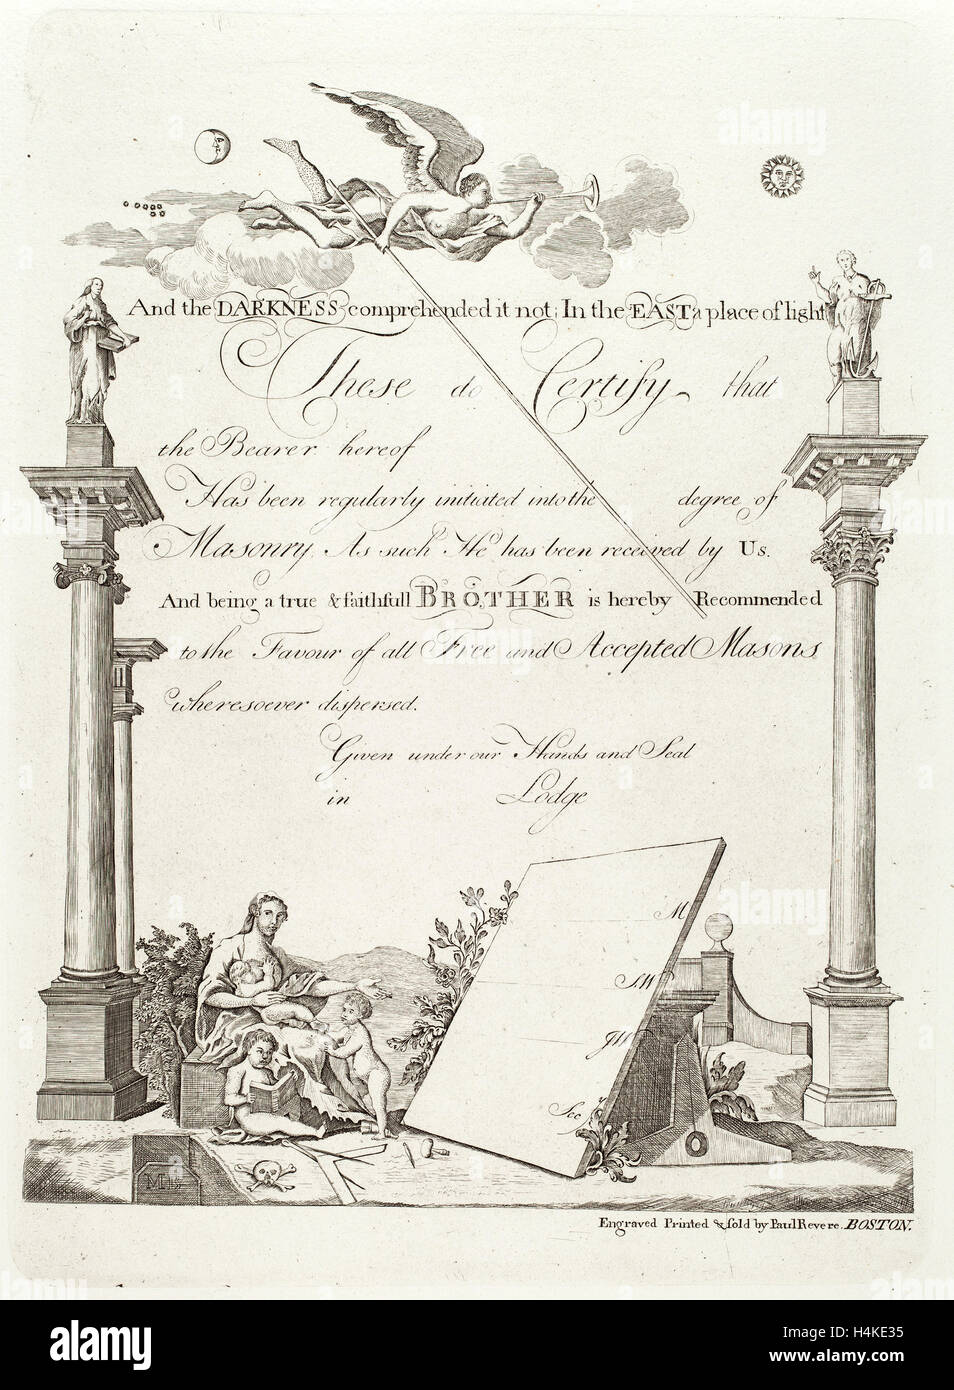 And the DARKNESS comprehended it not; In the EAST a place of light
These do Certify that
the Bearer hereof
Has been regularly initiated into the degree of
Masonry. As such He has been received by Us.
And being a true & faithfull BROTHER is hereby Recommended
to the Favour of all Free and Accepted Masons
wheresoever dispersed.
Given under our Hands and Seal
in Lodge
M
S.W
J.W
Sec
Engraved Printed & sold by Paul Revere. BOSTON.
alamy
Image ID: H4KE35
www.alamy.com